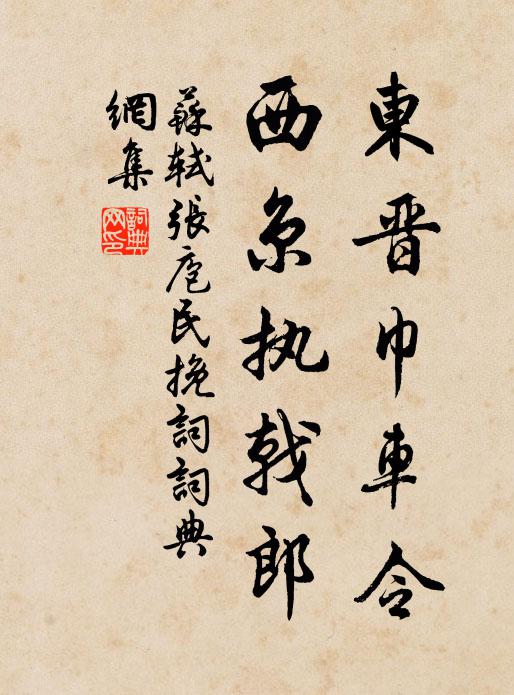 東晋巾車令
西京执戟郎
蘇軾張庖民挽詞詞典
網集
詞典
网印